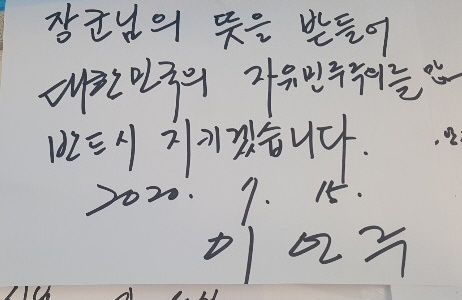 장군님의 뜻을 받들어
대한민국의 자유민주주의를
반드시 지키겠습니다.
2020. 7. 15.
이언주